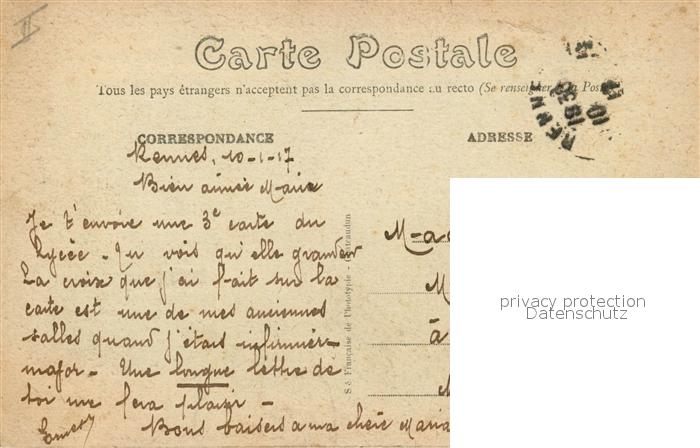 II
Carte Postale
Tous les pays étrangers n'acceptent pas la correspondance au recto (Se renseigner à la Poste
CORRESPONDANCE
ADRESSE
RENNE
18 30
10
Rennes, 10-1-17
Bien aimée Marie
Je t'envoie une 3e carte du
Lycée. Tu vois qu'elle grandeur
La croix que j'ai fait sur la
carte est une de mes anciennes
salles quand j'étais infirmier-
major - Une longue lettre de
toi me fera plaisir -
Bons baisers a ma chère Maria
Ernest
M-a
M
à
Sté Française de Phototypie - Châteaudun
privacy protection
Datenschutz